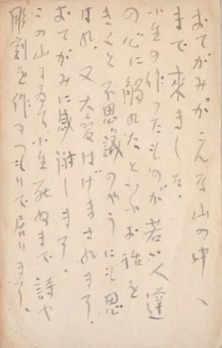 おてがみがこんな山の中へ
まで来ました。
小生の作ったものが若い人達
の心に触れたといふお話を
きくと不思議のやうにも思
はれ、又大変はげまされます。
おてがみに感謝します。
この山で小生死ぬまで詩や
彫刻を作るつもりで居ります。